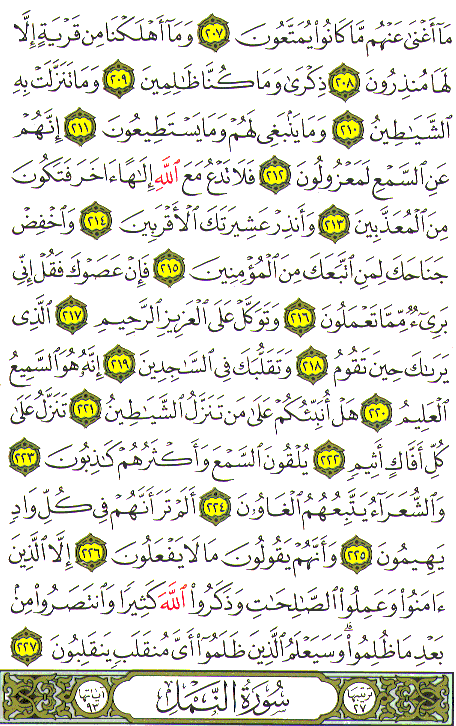 مَآ أَغْنَىٰ عَنْهُم مَّا كَانُوا۟ يُمَتَّعُونَ ٢٠٧ وَمَآ أَهْلَكْنَا مِن قَرْيَةٍ إِلَّا
لَهَا مُنذِرُونَ ٢٠٨ ذِكْرَىٰ وَمَا كُنَّا ظَـٰلِمِينَ ٢٠٩ وَمَا تَنَزَّلَتْ بِهِ
ٱلشَّيَـٰطِينُ ٢١٠ وَمَا يَنۢبَغِى لَهُمْ وَمَا يَسْتَطِيعُونَ ٢١١ إِنَّهُمْ
عَنِ ٱلسَّمْعِ لَمَعْزُولُونَ ٢١٢ فَلَا تَدْعُ مَعَ ٱللَّهِ إِلَـٰهًا ءَاخَرَ فَتَكُونَ
مِنَ ٱلْمُعَذَّبِينَ ٢١٣ وَأَنذِرْ عَشِيرَتَكَ ٱلْأَقْرَبِينَ ٢١٤ وَٱخْفِضْ
جَنَاحَكَ لِمَنِ ٱتَّبَعَكَ مِنَ ٱلْمُؤْمِنِينَ ٢١٥ فَإِنْ عَصَوْكَ فَقُلْ إِنِّى
بَرِىٓءٌ مِّمَّا تَعْمَلُونَ ٢١٦ وَتَوَكَّلْ عَلَى ٱلْعَزِيزِ ٱلرَّحِيمِ ٢١٧ ٱلَّذِى
يَرَىٰكَ حِينَ تَقُومُ ٢١٨ وَتَقَلُّبَكَ فِى ٱلسَّـٰجِدِينَ ٢١٩ إِنَّهُۥ هُوَ ٱلسَّمِيعُ
ٱلْعَلِيمُ ٢٢٠ هَلْ أُنَبِّئُكُمْ عَلَىٰ مَن تَنَزَّلُ ٱلشَّيَـٰطِينُ ٢٢١ تَنَزَّلُ عَلَىٰ
كُلِّ أَفَّاكٍ أَثِيمٍ ٢٢٢ يُلْقُونَ ٱلسَّمْعَ وَأَكْثَرُهُمْ كَـٰذِبُونَ ٢٢٣
وَٱلشُّعَرَآءُ يَتَّبِعُهُمُ ٱلْغَاوُۥنَ ٢٢٤ أَلَمْ تَرَ أَنَّهُمْ فِى كُلِّ وَادٍ
يَهِيمُونَ ٢٢٥ وَأَنَّهُمْ يَقُولُونَ مَا لَا يَفْعَلُونَ ٢٢٦ إِلَّا ٱلَّذِينَ
ءَامَنُوا۟ وَعَمِلُوا۟ ٱلصَّـٰلِحَـٰتِ وَذَكَرُوا۟ ٱللَّهَ كَثِيرًا وَٱنتَصَرُوا۟ مِنۢ
بَعْدِ مَا ظُلِمُوا۟ ۗ وَسَيَعْلَمُ ٱلَّذِينَ ظَلَمُوٓا۟ أَىَّ مُنقَلَبٍ يَنقَلِبُونَ ٢٢٧
ترتيبها ٢٧ سُورَةُ ٱلنَّمْلِ آياتها ٩٣